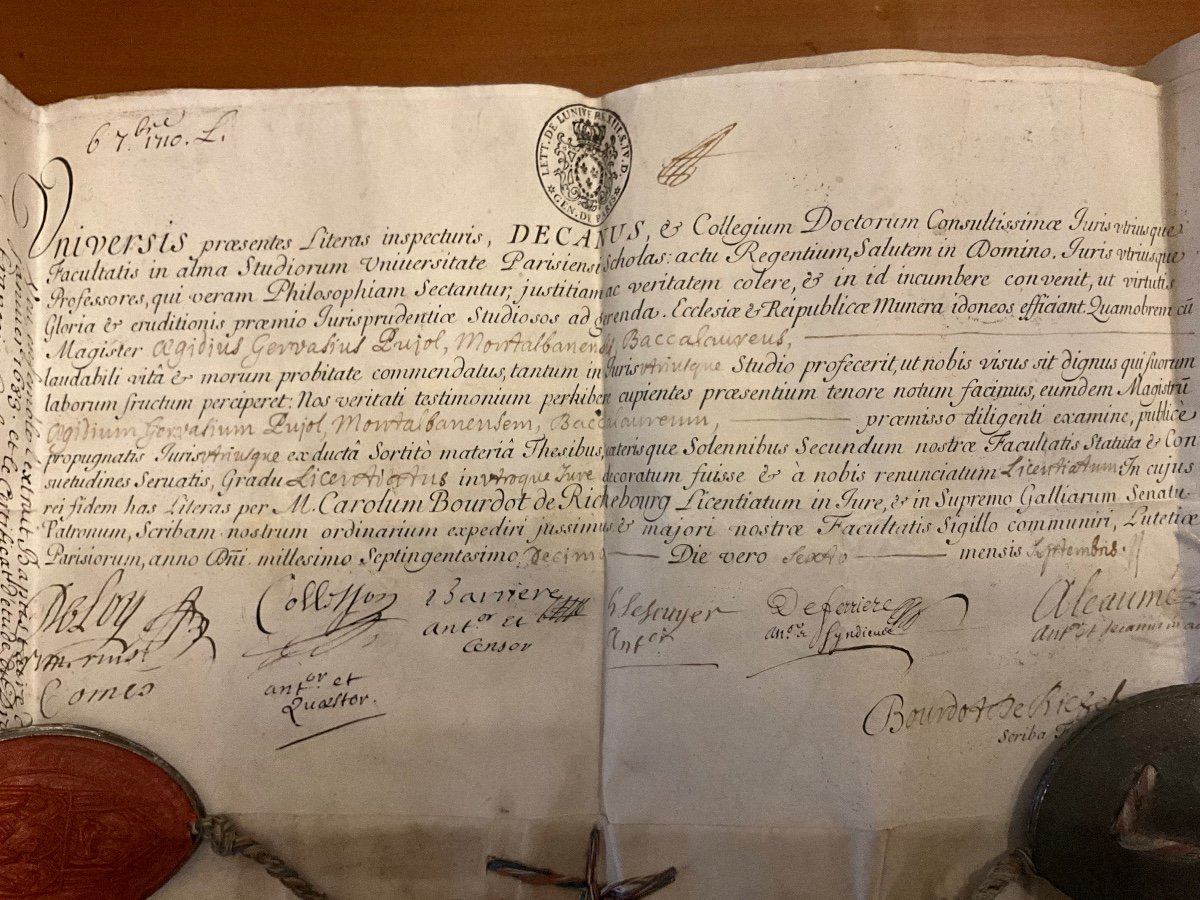 6 7.bre 1710. L.
LETT. DE LUNIVERSITE
GEN. DE PARIS
Vniversis præsentes Literas inspecturis, DECANUS, & Collegium Doctorum Consultissimæ Iuris vtriusque
Facultatis in alma Studiorum Vniuersitate Parisiensi Scholas: actu Regentium, Salutem in Domino. Iuris vtriusque
Professores, qui veram Philosophiam Sectantur, justitiam ac veritatem colere, & in id incumbere convenit, ut virtutis
Gloria & eruditionis præmio Iurisprudentiæ Studiosos ad gerenda. Ecclesiæ & Reipublicæ Munera idoneos efficiant. Quamobrem cũ
Magister Ægidius Gervasius Pujol, Montalbanensis, Baccalaureus,
laudabili vitâ & morum probitate commendatus, tantum in Iuris vtriusque Studio profecerit, ut nobis visus sit dignus qui suorum
laborum fructum perciperet; Nos veritati testimonium perhibere cupientes præsentium tenore notum facimus, eumdem Magistrũ
Ægidium Gervasium Pujol, Montalbanensem, Baccalaureum, præmisso diligenti examine, publicè
propugnatis Iuris vtriusque ex ductâ Sortitò materiâ Thesibus, cæterisque Solennibus Secundum nostræ Facultatis Statuta & Con
suetudines Seruatis, Gradu Licentiatus in vtroque Iure decoratum fuisse & à nobis renunciatum Licentiatum. In cujus
rei fidem has Literas per M. Carolum Bourdot de Richebourg Licentiatum in Iure, & in Supremo Galliarum Senatu
Patronum, Scribam nostrum ordinarium expediri jussimus & majori nostræ Facultatis Sigillo communiri, Lutetiæ
Parisiorum, anno Dñi. millesimo Septingentesimo, Decimo Die vero Sexto mensis Septembris.
DeLoy Collesson Barriere Lescuyer Deferriere Aleaume
antor et Censor
antor
antor Syndicus
antor et Decanus
Comes
antor et
Quæstor.
Bourdot de Rich
Scriba